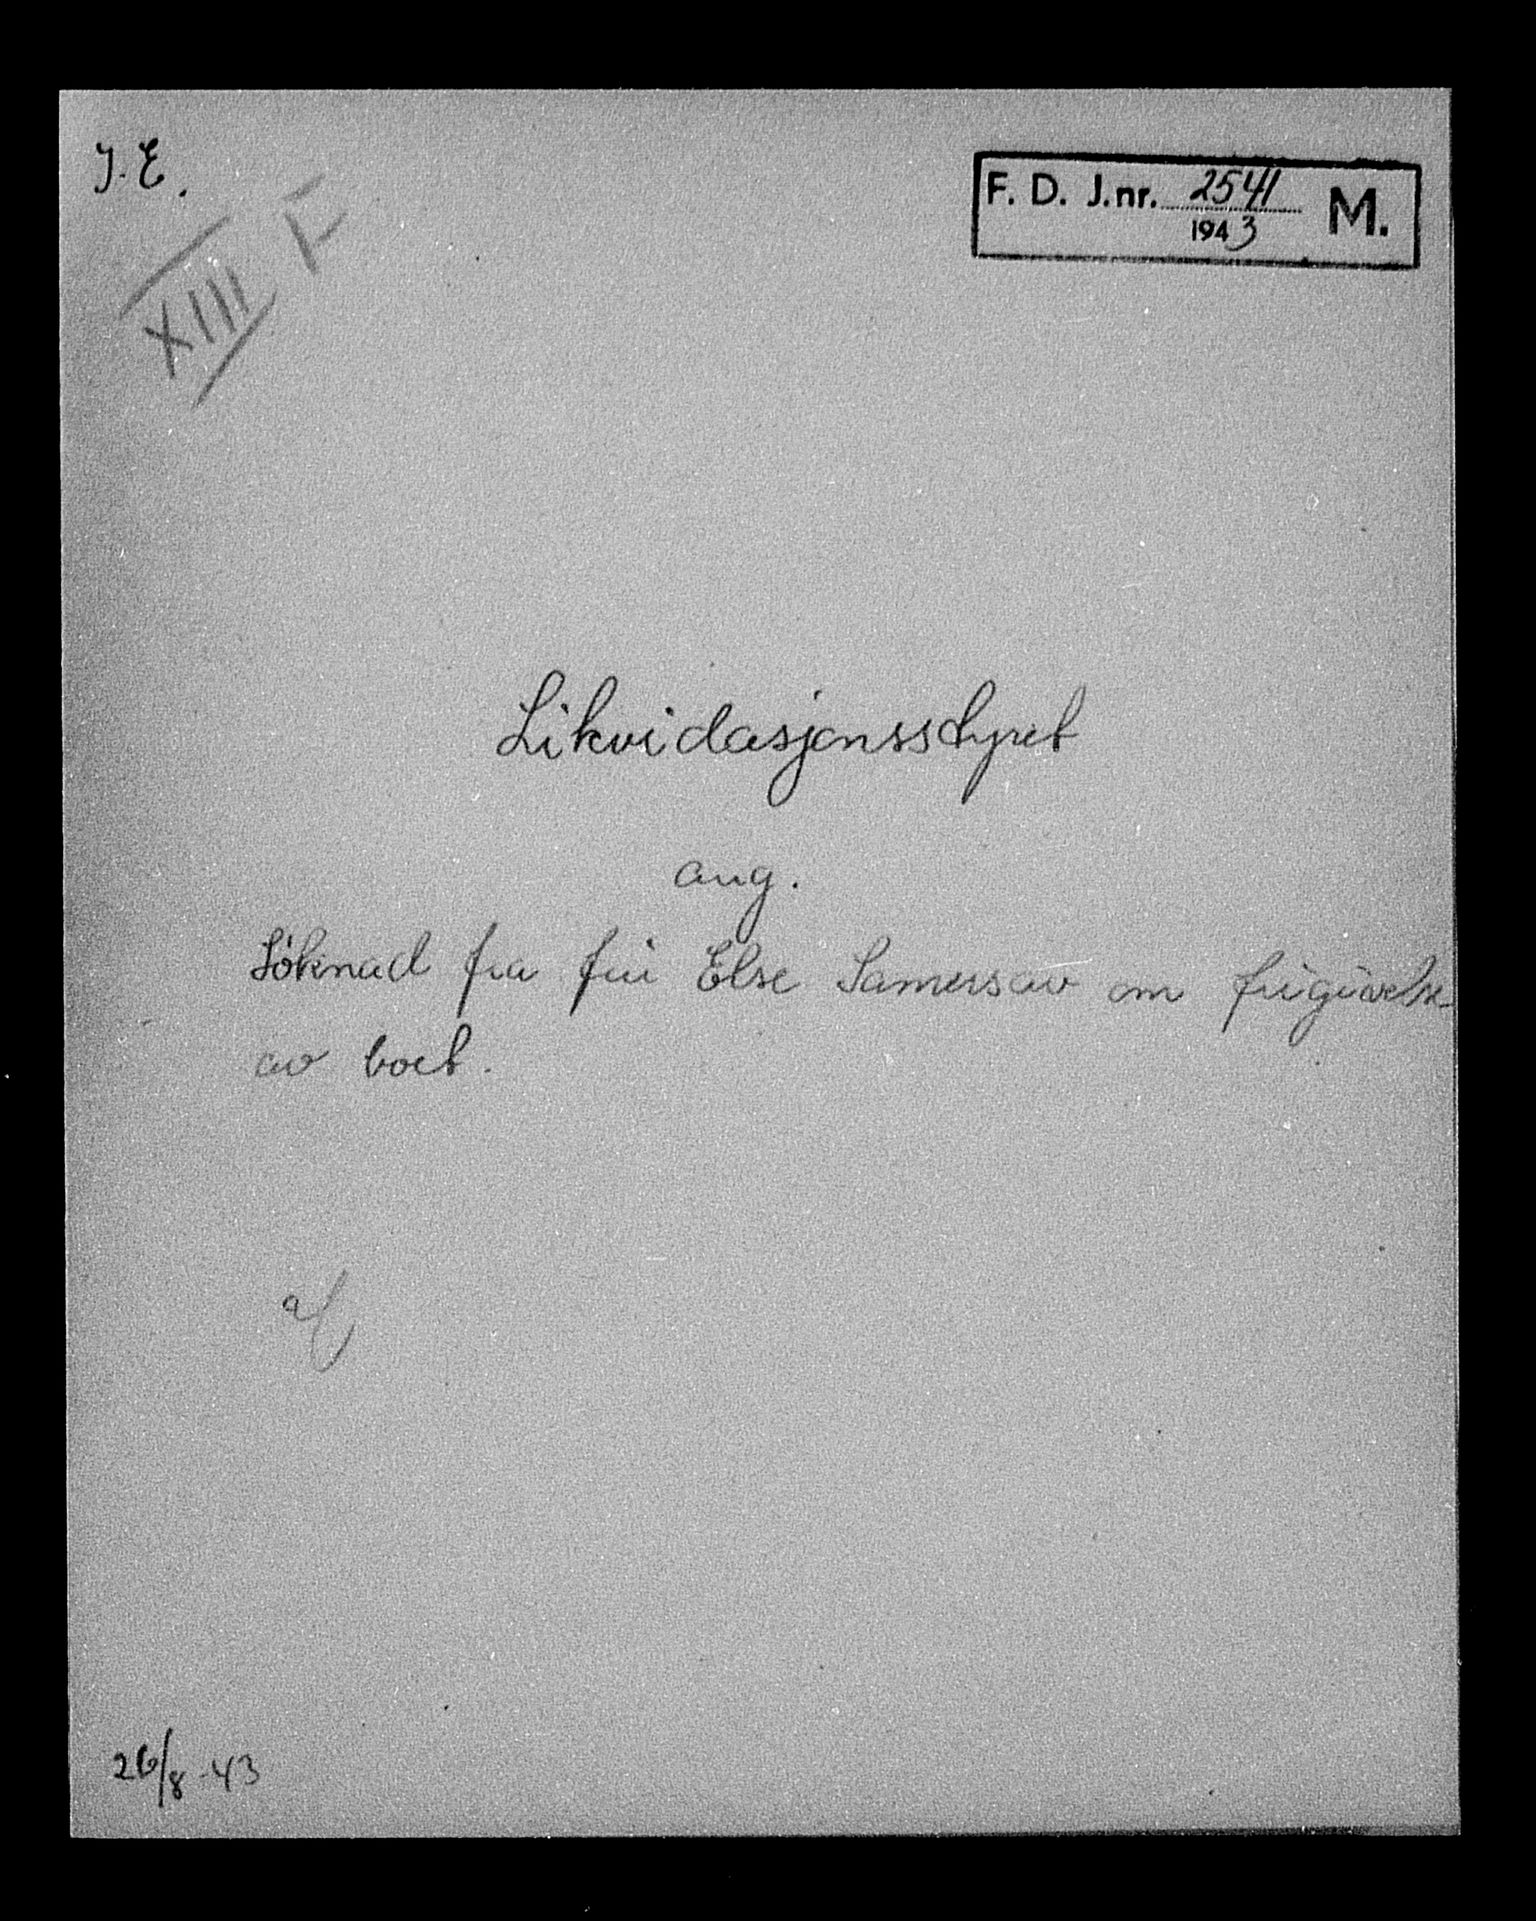 J. E.
F. D. J.nr. 2541 M.
1943
XIII F
Likvidasjonsstyret
ang.
Søknad fra fru Else Samersaw om frigivelse
av boet.
26/8-43